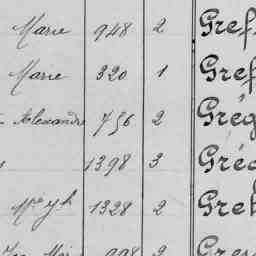 Marie 948 2 Gref
Marie 320 1 Gref
Alexandre 756 2 Grég
1398 3 Gréc
Mie Jh 1328 2 Gret
998 2 Gres